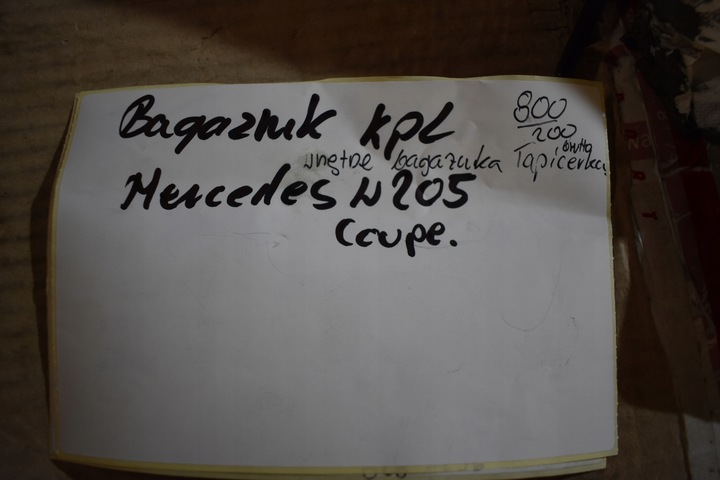 Bagaznik kpl
800
200
brutto
wnętrze bagaznika Tapicerka
Mercedes W205
Coupe.